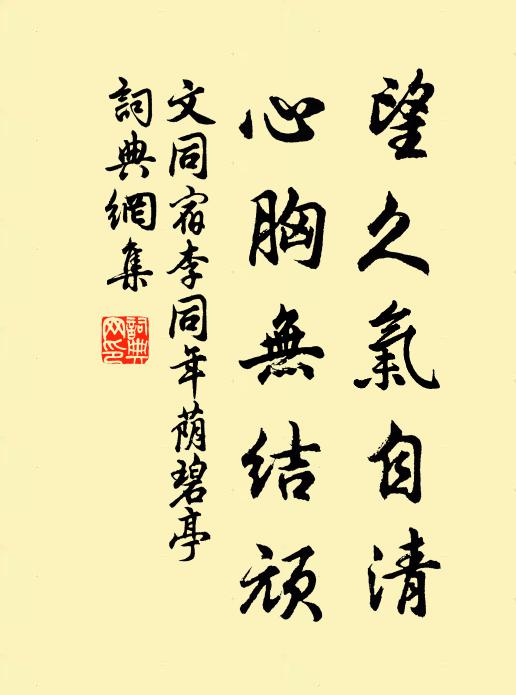 望久氣自清
心胸無結頑
文同宿李同年蔭碧亭
詞典網集
詞典
网印